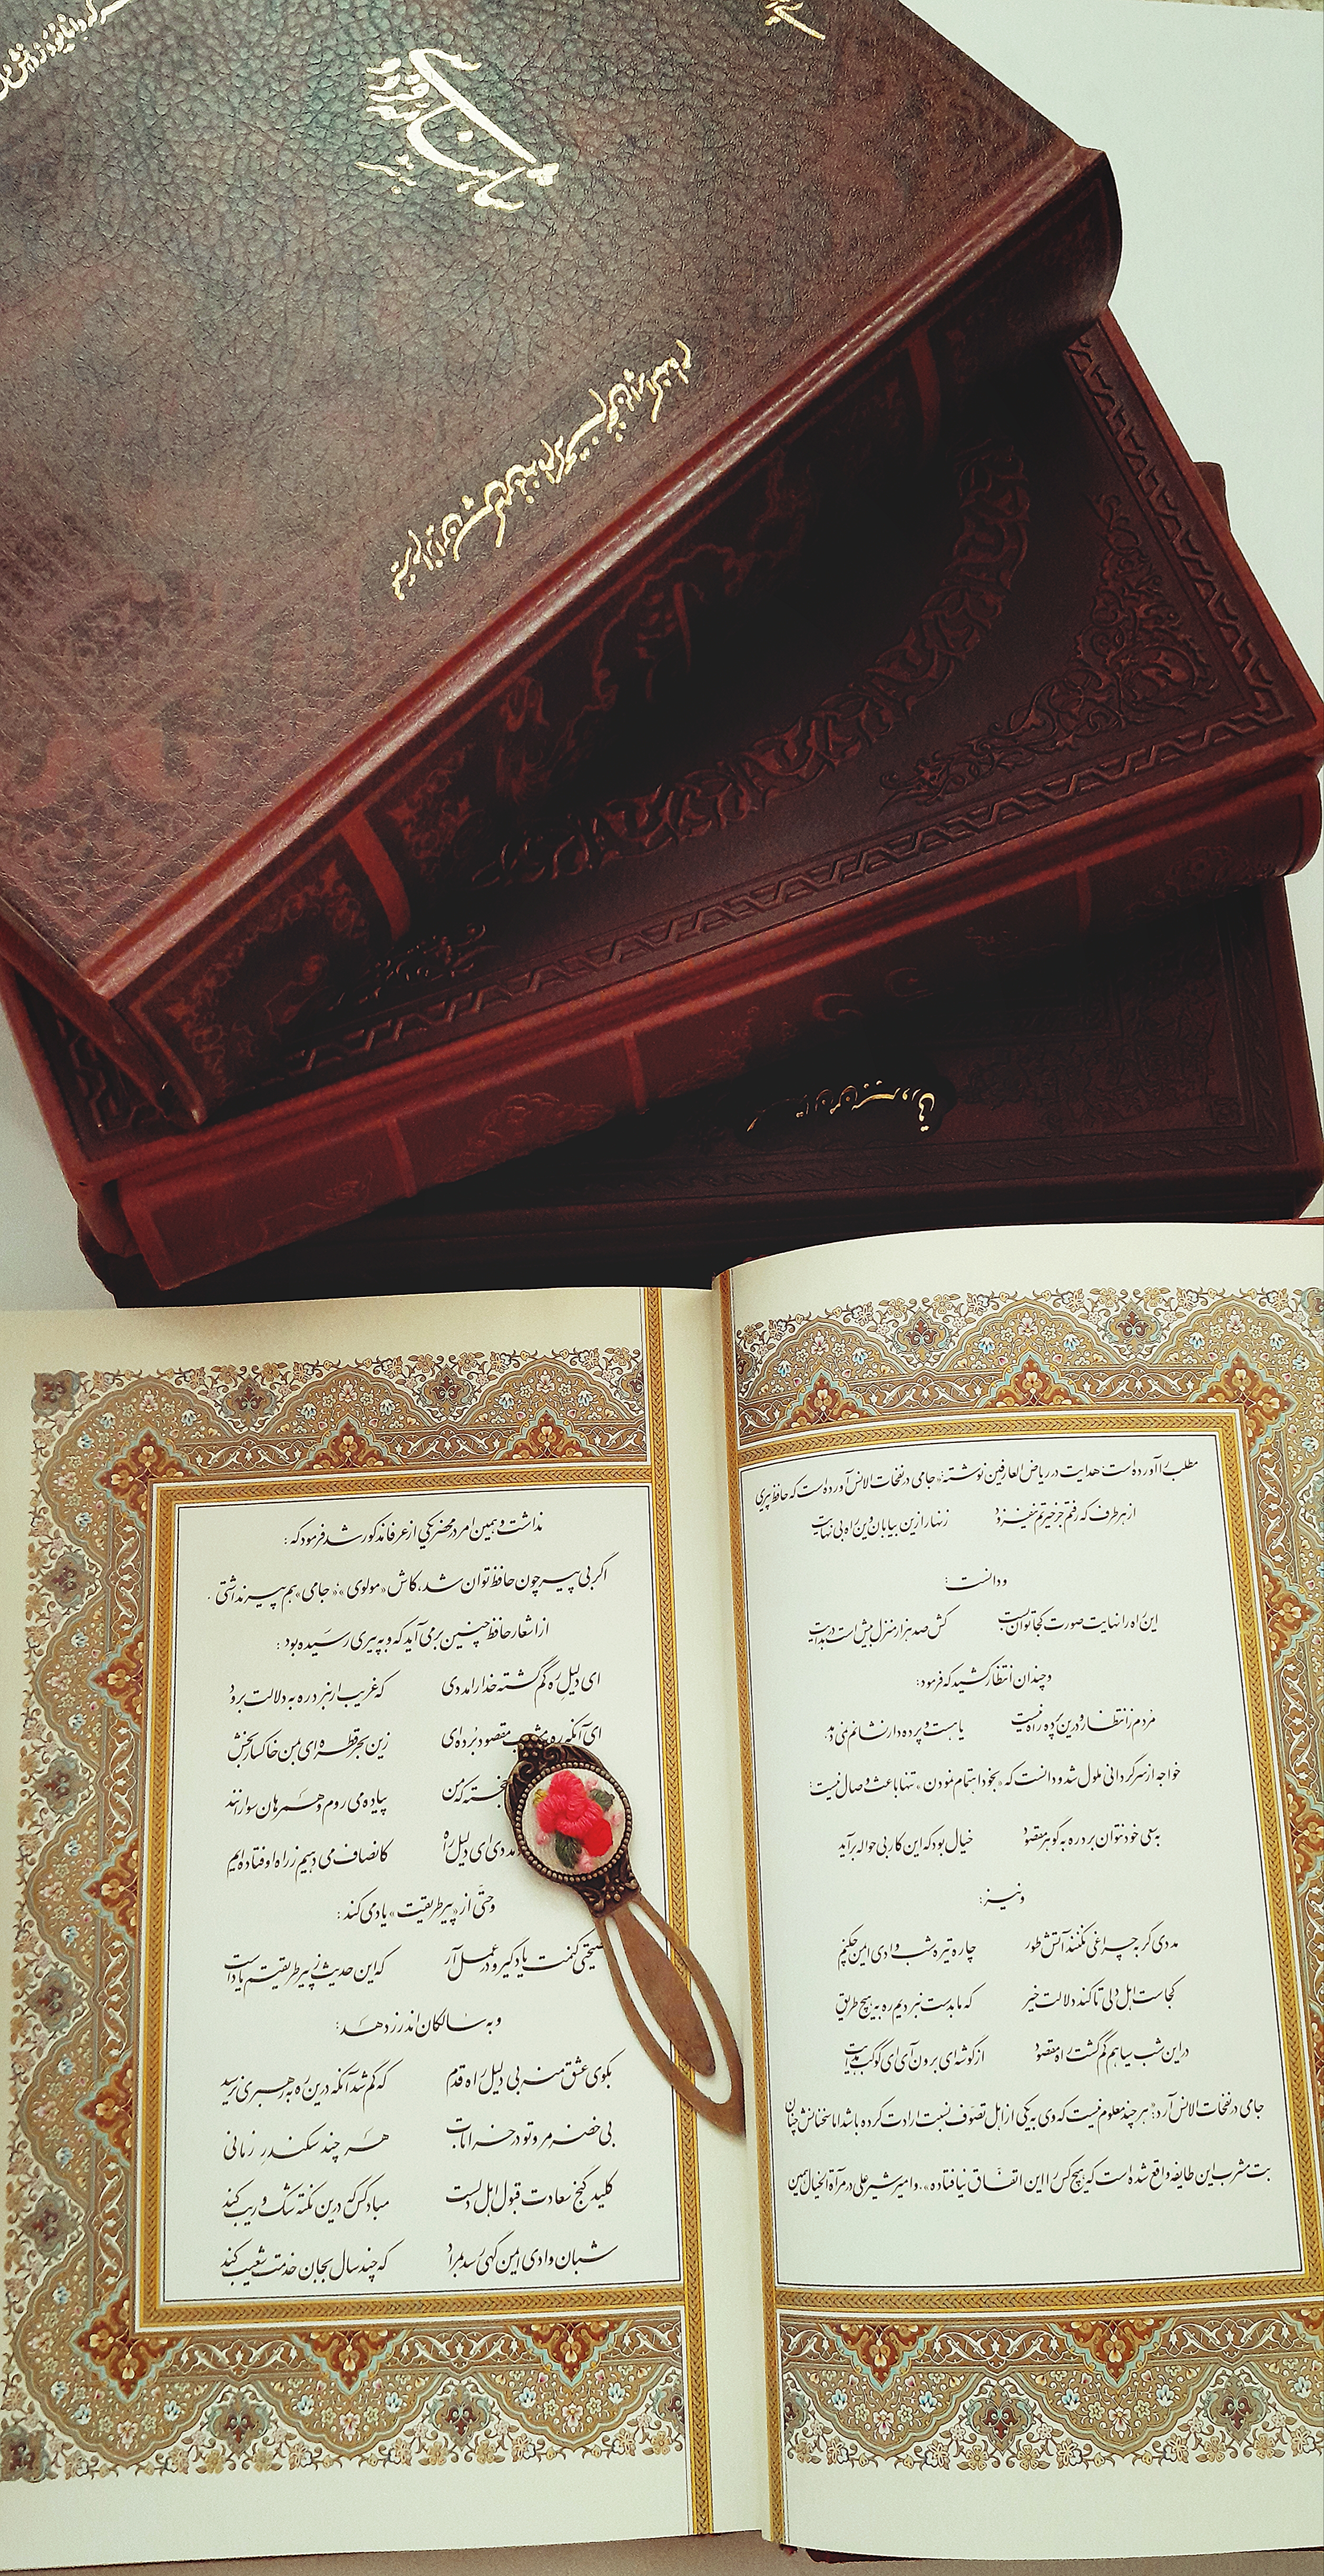 مطلب را آورده است هدایت در ریاض العارفین نوشته: «جامی در نفحات الانس آورده است که حافظ پیری
از هر طرف که رفتم جز حیرتم نیفزود زنهار ازین بیابان وین راه بی نهایت
و دانست:
این راه را نهایت صورت کجا توان بست کش صد هزار منزل بیش است در بدایت
و چندان انتظار کشید که فرمود:
مردم ز انتظار و درین پرده راه نیست یا هست و پرده دار نشانم نمی دهد
خواجه از سرگردانی ملول شد و دانست که «بخود اهتمام نمودن» تنها باعث وصال نیست:
به سعی خود نتوان برد ره به گوهر مقصود خیال بود که این کار بی حواله برآید
و نیز:
مددی گر به چراغی نکند آتش طور چاره تیره شب وادی ایمن چکنم
کجاست اهل دلی تا کند دلالت خیر که ما بدست نبردیم ره به هیچ طریق
در این شب سیاهم گم گشت راه مقصود از گوشه ای برون آی ای کوکب هدایت
جامی در نفحات الانس آرد: «هر چند معلوم نیست که وی به یکی از اهل تصوف نسبت ارادت کرده باشد اما سخنانش چنان
بت مشرب این طایفه واقع شده است که هیچ کس را این اتفاق نیافتاده»، و امیر شیر علی در مرآة الخیال همین
نداشت و همین امر در محضر یکی از عرفا مذکور شد فرمود که:
اگر بی پیر چون حافظ توان شد، کاش «مولوی» و «جامی» هم پیر نداشتی.
از اشعار حافظ چنین برمی آید که وی به پیری رسیده بود:
ای دلیل ره گم گشته خدا را مددی که غریب ار نبرد ره به دلالت برود
ای آنکه ره مقصود برده ای زین بحر قطره ای بمن خاکسار بخش
خجسته که من پیاده می روم و همرهان سوارانند
مددی ای دلیل راه کانصاف می دهیم ز راه اوفتاده ایم
و حتی از «پیر طریقت» یاد می کند:
نصیحتی کنمت یاد گیر و در عمل آر که این حدیث ز پیر طریقتم یاد است
و به سالکان اندرز دهد:
بکوی عشق منه بی دلیل راه قدم که گم شد آنکه درین ره به رهبری نرسید
بی خضر مرو تو در خرابات هر چند سکندر زمانی
کلید گنج سعادت قبول اهل دلست مباد کس که درین نکته شک و ریب کند
شبان وادی ایمن گهی رسد بمراد که چند سال بجان خدمت شعیب کند